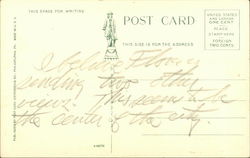 THIS SPACE FOR WRITING
POST CARD
THIS SIDE IS FOR THE ADDRESS
UNITED STATES
AND ISLANDS
ONE CENT
PLACE
STAMP HERE
FOREIGN
TWO CENTS
I believe
sending two other
views. This seem to be
the center of the city.